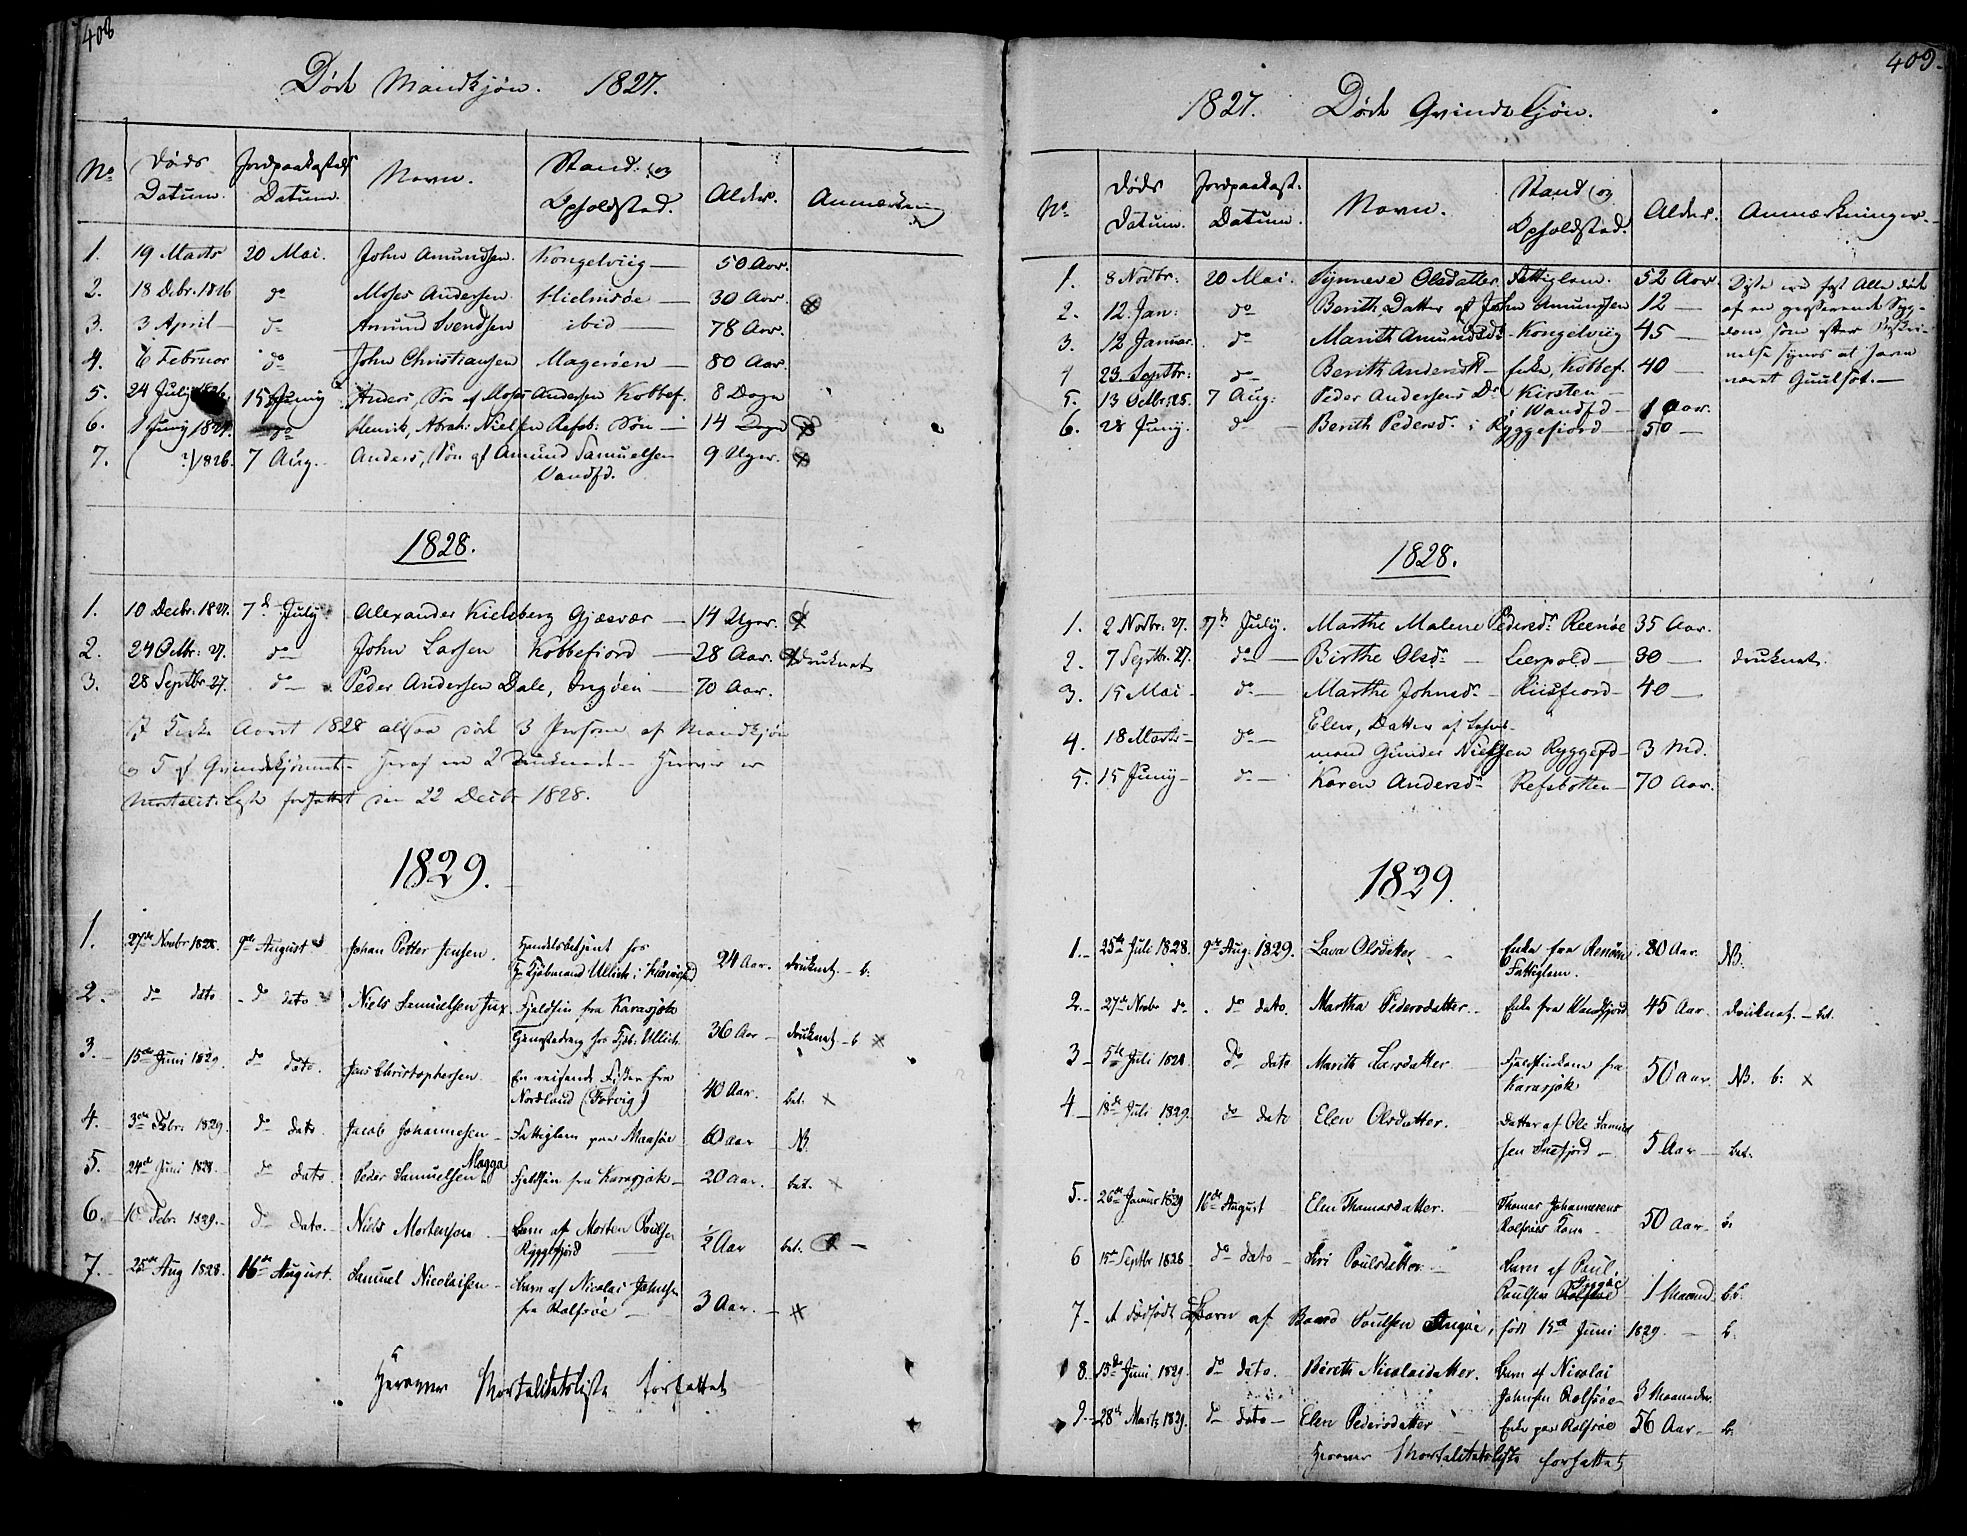 408
Døde Mandkjøn. 1827.
No Døds Datum. Jordpaakastels Datum. Navn. Stand og Opholdsted. Alder. Anmærkning
1. 19 Marts 20 Mai. John Amundsen. Kongelviig 50 Aar.
2. 18 Debr. 1826 do Moses Andersen Hielmsøe 30 Aar.
3. 3 April do Amund Svendsen ibid 78 Aar.
4. 6 Februar do John Christiansen Magerøen 80 Aar.
5. 24 July 1826. 15 Juny Anders, Søn af Moses Andersen Kobbef. 8 Døgn
6. 1 Juny 1827. do Henrik, Abrah: Nielsen Refsb: Søn 14 Døgn
7. 1826. 7 Aug. Anders, Søn af Amund Samuelsen 9 Uger.
Vandfd.
1828.
1. 10 Decbr. 1827. 7de July Alexander Kielsberg Gjæsvær 14 Uger.
2. 24 Octbr: 27. do John Larsen Kobbefiord 28 Aar. druknet
3. 28 Septbr 27. do Peder Andersen Dale, Ingøen 70 Aar.
I Kirke Aaret 1828 altsaa død 3 Persone af Mandkjøn
og 5 af Qvindekjønnet. Heraf ere 2 Druknede. Herover er
Mortalit: Liste forfattet den 22 Decbr 1828.
1829.
1. 27de Novbr 1828. 9de August Johan Petter Jensen. Handelsbetjent hos
Hr Kjøbmand Ullich i 24 Aar. druknet b.
2. do dato do dato Niels Samuelsen Jux Fjeldfin fra Karasjok
Tjenestedreng hos Kjbm. Ullich 36 Aar druknet b
3. 15de Juni 1829. do dato. Jens Christophersen En reisende Fisker fra
Nordland 40 Aar. bet.
4. 3de Febr. 1829. do dato. Jacob Johannesen Fattiglem paa Maasøe 60 Aar NB.
5. 24de Juni 1828. do dato. Peder Samuelsen Magga Fjeldfin fra Karasjok 20 Aar. bet.
6. 10de Febr. 1829. do dato. Niels Mortensen Barn af Morten Poulsen
Ryggefjord ½ Aar bet.
7. 25de Aug 1828. 16de August. Samuel Nicolaisen Barn af Nicolai Johnsen
fra Rolfsøe 3 Aar.
Herover Mortalitetsliste forfattet
409.
1827. Døde Qvindekjøn.
No. Døds Datum. Jordpaakast. Datum. Navn. Stand og Opholdsted. Alder. Anmærkninger.
1. 8 Novbr: 20 Mai. Synneve Olsdatter Fattiglem. 52 Aar. Disse ere fast Alle død
2. 12. Jan: do Berith, Datter af John Amundsen 12 af en grasserende Syg-
3. 12 Januar. do Marith Amundsd: Kongelviig 45 dom som efter Beskri-
4 23. Septbr: do Berith Andersdr Enke, Kobbef. 40 velse synes at have
5. 13 Octbr: 25. 7 Aug: Peder Andersens Dr Kirsten været Guulsot.
i Vandfd 1 Aar.
6. 28 Juny. do Berith Pedersd. i Ryggefiord 50
1828.
1. 2 Novbr. 27. 7de July. Marthe Malene Pedersdr. Reenøe 35 Aar.
2. 7 Septbr. 27. do Birthe Olsdr Leerpold 30 druknet.
3. 15 Mai do Marthe Johnsdr Riisfiord 40
Elen, Datter af
4. 18 Marts do mand Gunder Nielsen Ryggefd 3 Md.
5. 15 Juny do Karen Andersdr Refsbotten 70 Aar.
1829.
1. 25de Juli 1828. 9de Aug: 1829. Lava Olsdatter Enke fra Renøen 80 Aar. NB.
Fattiglem.
2. 27de Novbr do. do dato. Martha Pedersdatter. Enke fra Vandfjord 45 Aar druknet. bet.
3 5te Juli 1828 do dato Marith Larsdatter Fjeldfinkone fra
Karasjok 50 Aar NB. b:
4 18de Juli 1829. do dato Elen Olsdatter. Datter af Ole Samuel
sen Snefjord 5 Aar bet:
5. 26de Januar 1829 16de August Elen Thomasdatter. Thomas Johannesens
Rolfsøes Kone 50 Aar. b:
6 15de Septbr 1828 do dato Siri Poulsdatter Barn af Poul
Poulsen Rolfsøe Ingøe 1 Maaned b.
7 et dødfødt Barn af Baard Poulsen Ingøe, født 15de Juni 1829. b:
8. 13de Juni 1829. do dato. Bereth Nicolaidatter. Barn af Nicolai
Johnsen Rolfsøe 3 Maaneder.
9. 28de Marts 1829. do dato Elen Pedersdatter Enke paa Rolfsøe 56 Aar b.
Herover Mortalitetsliste forfattet